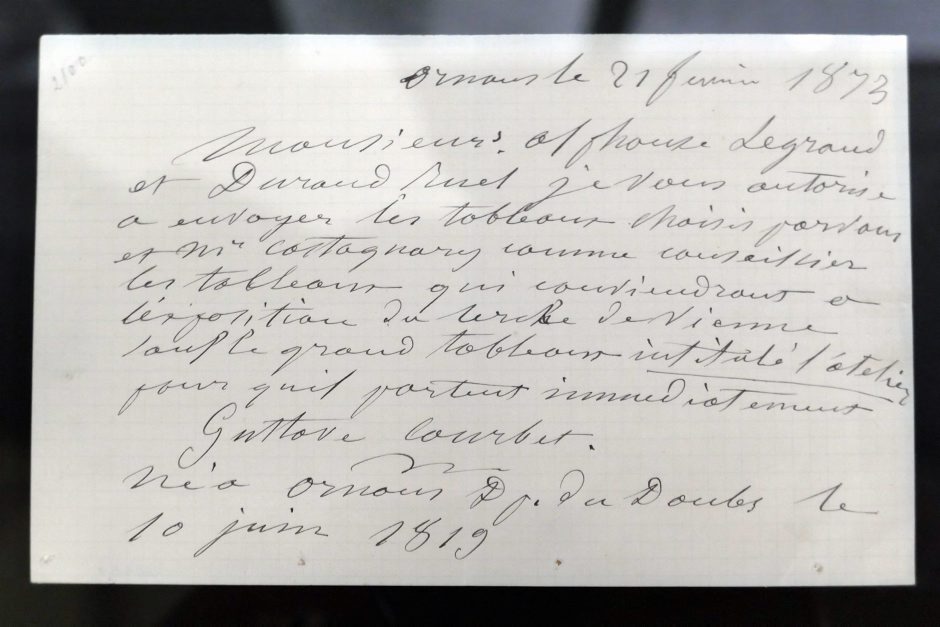 2100
ornans le 21 fevrier 1873
Monsieurs. alphonse Legrand
et Durand Ruel je vous autorise
a envoyer les tableaux choisis par vous
et Mr castagnary comme conseillier
les tableaux qui conviendront a
l'exposition du cercle de Vienne
sauf le grand tableaux intitulé l'atelier
pour quil partent immediatement
Gustave Courbet.
né a ornans Dp. du Doubs le
10 juin 1819